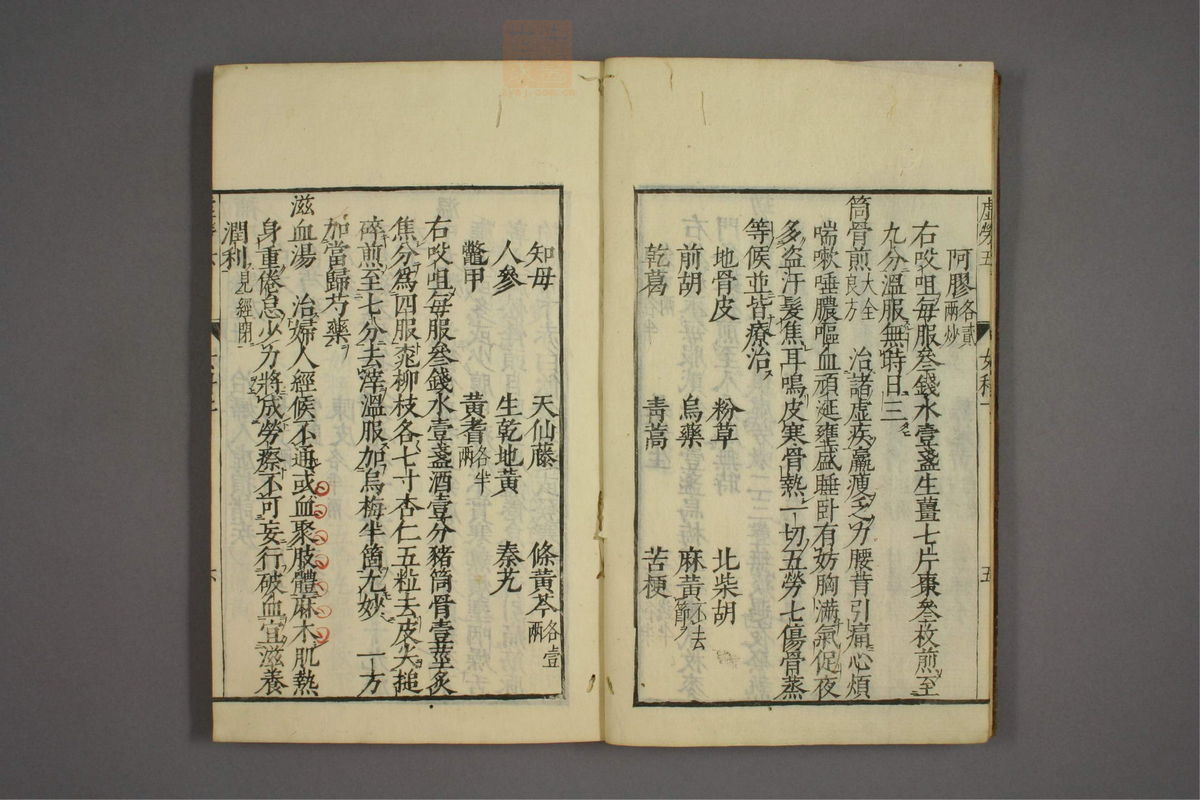 阿膠各貳兩炒
右㕮咀每服叄錢水壹盞生薑七片棗叄枚煎至
九分溫服無時日三
筒骨煎大全良方 治諸虛疾羸瘦乏力腰背引痛心煩
喘嗽唾膿嘔血頑涎壅盛睡臥有妨胸滿氣促夜
多盜汗髮焦耳鳴皮寒骨熱一切五勞七傷骨蒸
等候並皆療治
地骨皮 粉草 北柴胡
前胡 烏藥 麻黃不去節
乾葛 青蒿 苦梗
知母 天仙藤 條黃芩各壹兩
人參 生乾地黃 秦艽
鼈甲 黃耆各半兩
右㕮咀每服叄錢水壹盞酒壹分豬筒骨壹莖炙
焦分爲四服桃柳枝各七寸杏仁五粒去皮尖搥
碎煎至七分去滓溫服加烏梅半箇尤妙 一方
加當歸芍藥
滋血湯 治婦人經候不通或血聚肢體麻木肌熱
身重倦怠少力將成勞瘵不可妄行破血宜滋養
潤利見經閉